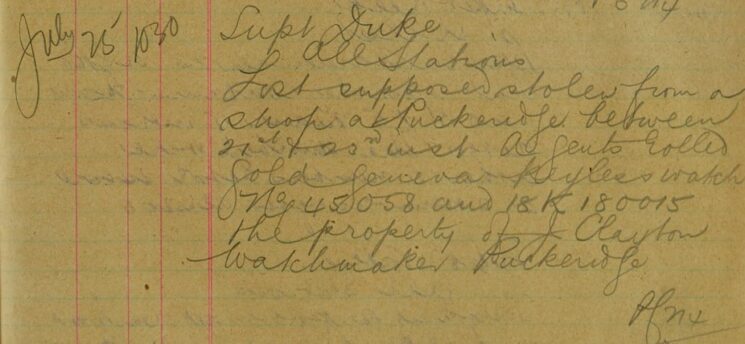 July 25 1030
Supt Duke
All Stations
Lost supposed stolen from a
shop at Puckeridge between
21st & 23rd inst A gents rolled
gold geneva keyless watch
No 45058 and 18K 180015
the property of J Clayton
Watchmaker Puckeridge